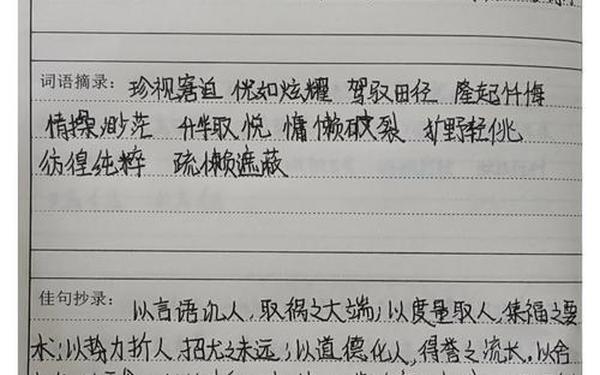 词语摘录：珍视窘迫 恍如炫耀 驾驭田径 隆起忏悔
情操渺茫 升华取悦 慵懒破裂 旷野轻佻
彷徨纯粹 疏懒遮蔽
佳句抄录：以言语讥人，取祸之大端；以度量取人，集福之要
术；以势力折人，招尤之未远；以道德化人，得誉之流长。以合